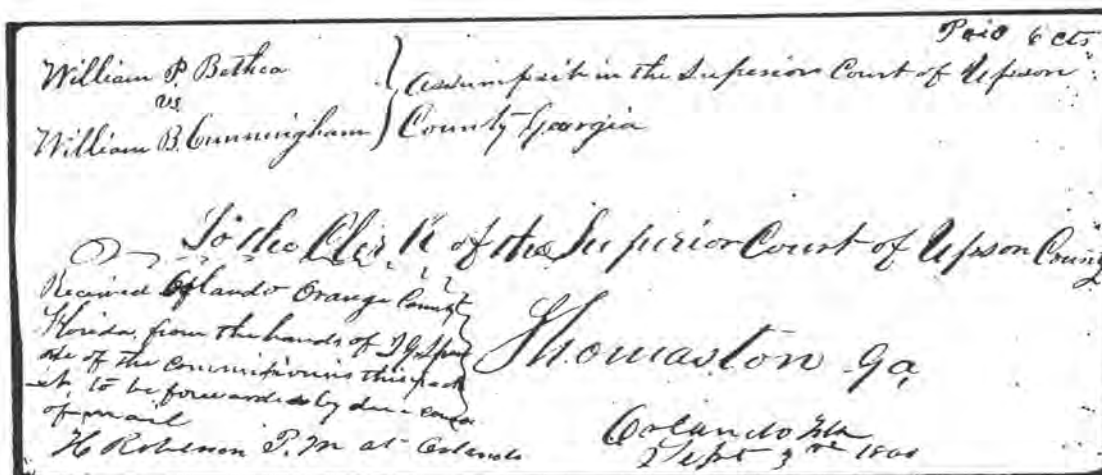 Paid 6 cts
William P. Bethea
vs
William B. Cunningham
Assumpsit in the Superior Court of Upson
County Georgia
To the Clerk of the Superior Court of Upson County
Thomaston Ga,
Received Orlando Orange County
Florida, from the hands of
one of the commissioners this pack
et to be forwarded by due course
of mail
H Roberson P. M at Orlando
Orlando Fla
Sept 3rd